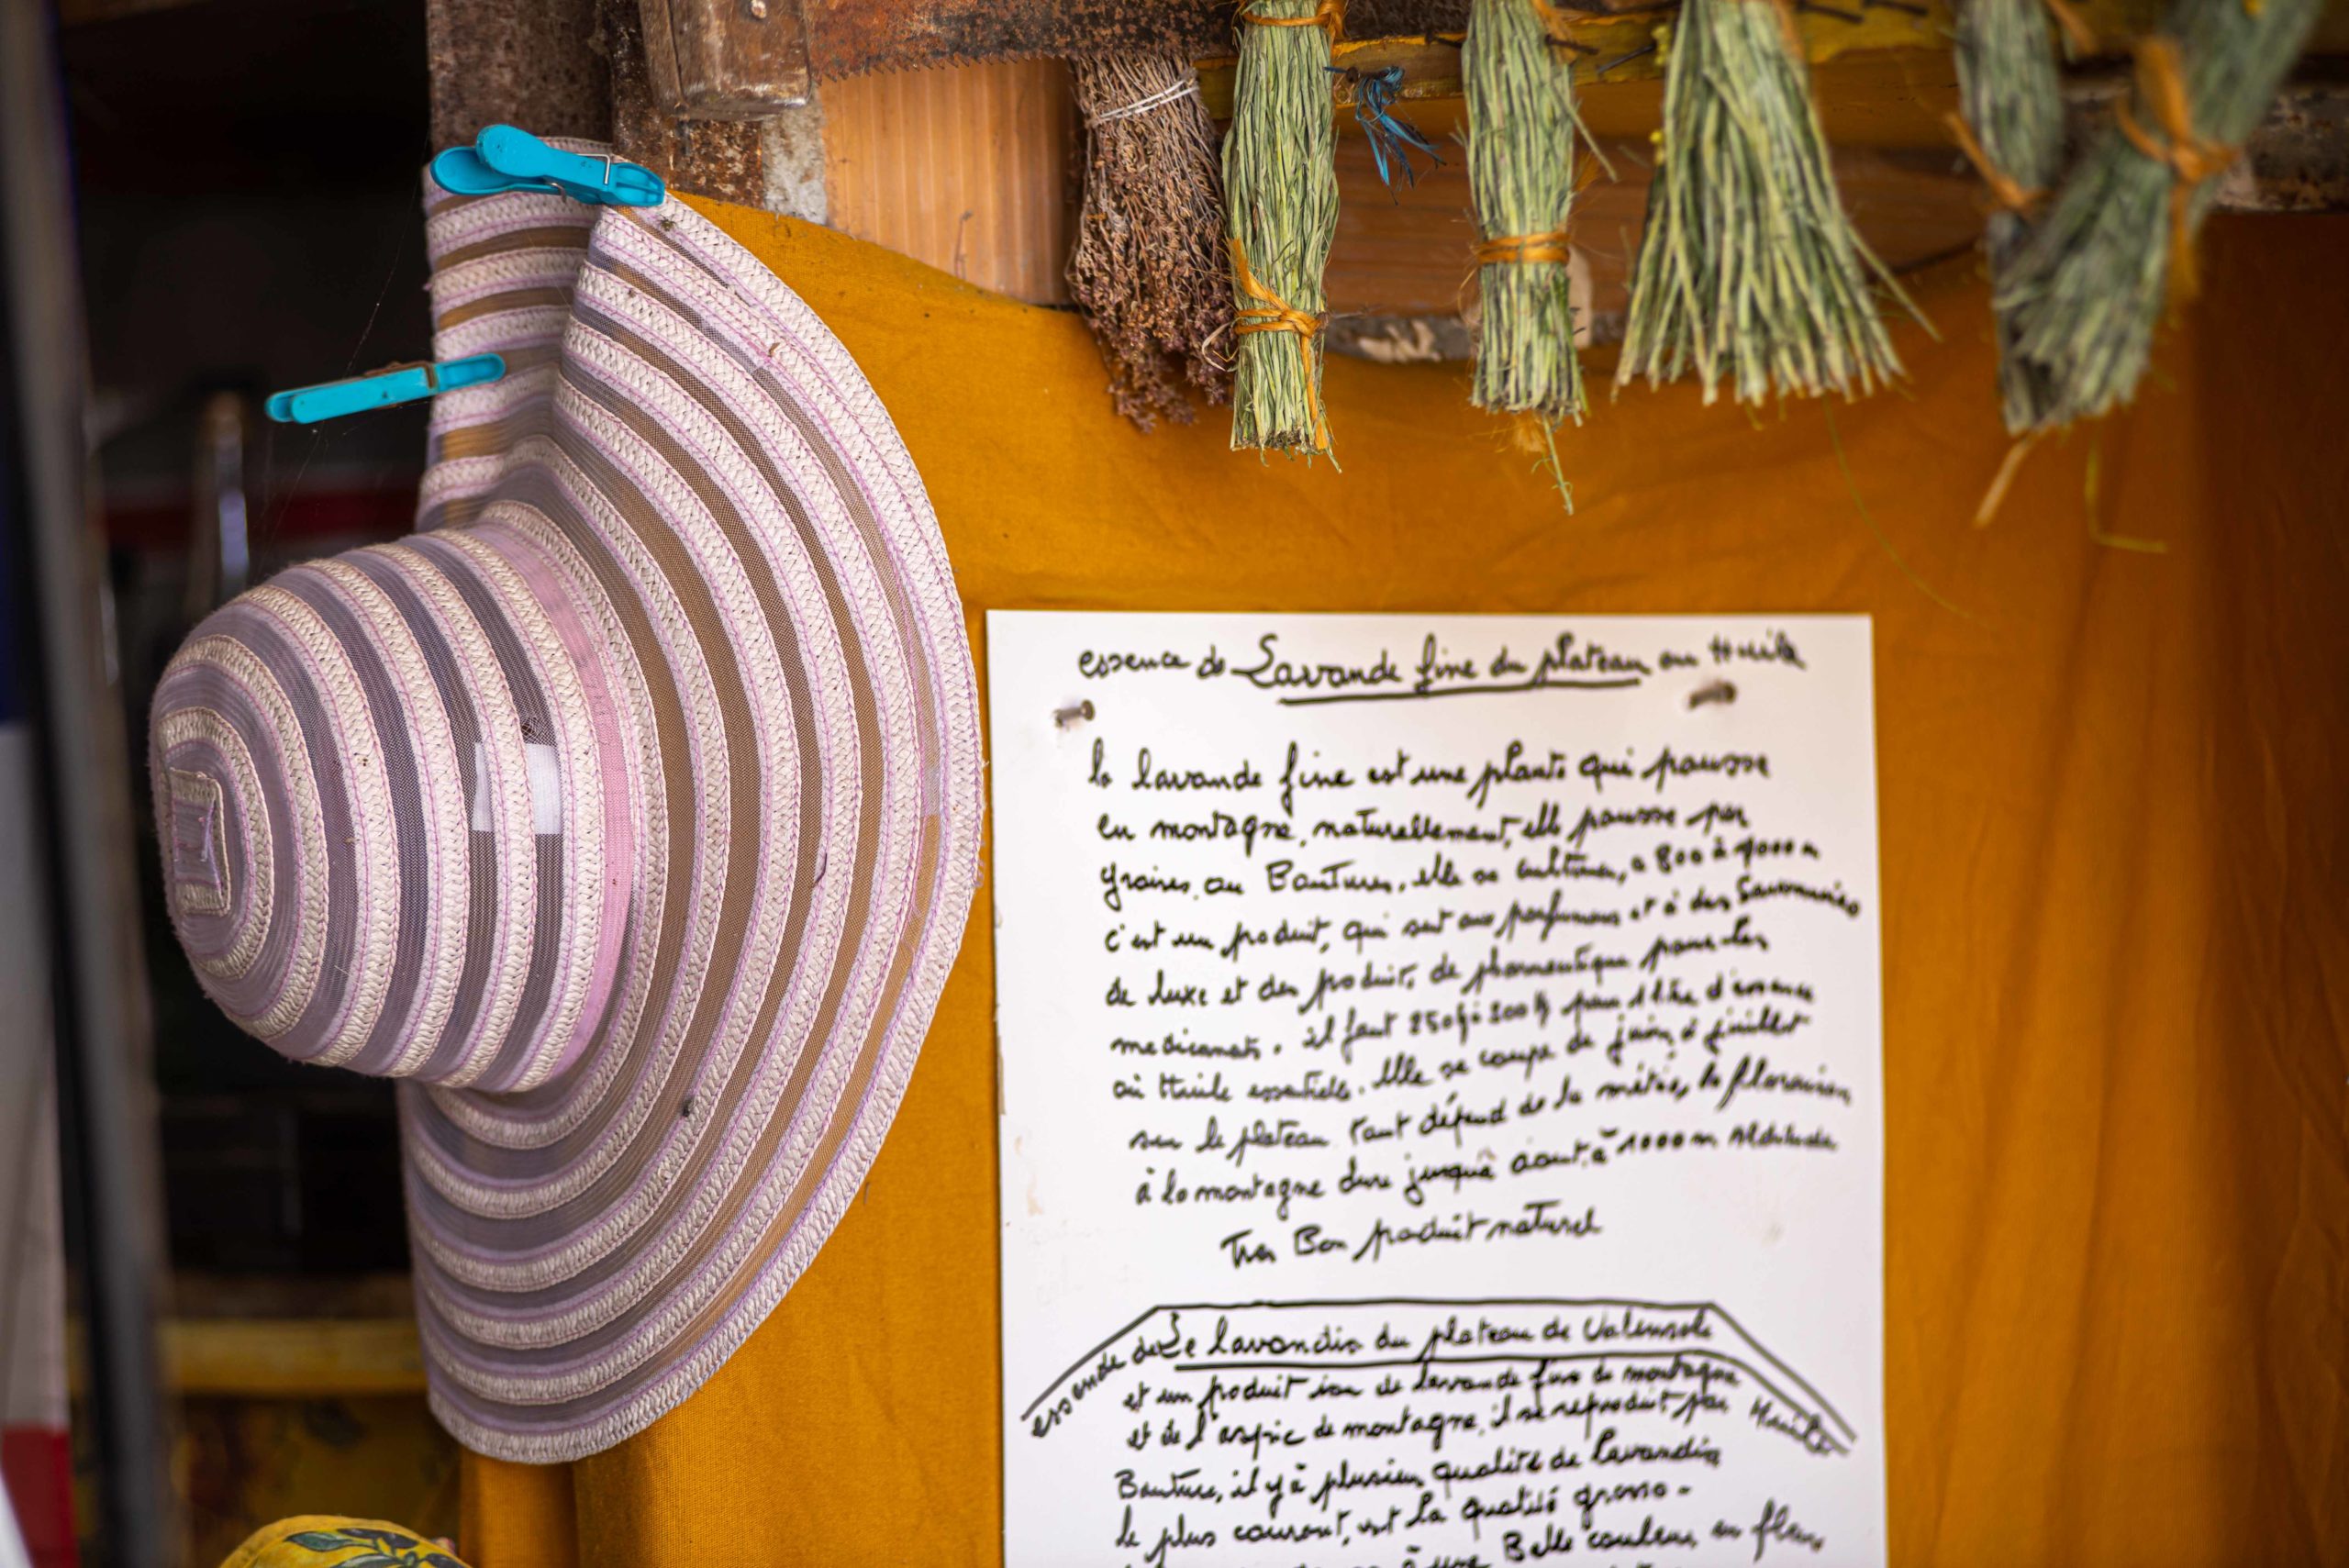 essence de Lavande fine du plateau ou Huile
la lavande fine est une plante qui pousse
en montagne, naturellement, elle pousse par
graines, ou Boutures, elle se cultive, a 800 à
c'est un produit, qui sert aux parfumeurs et à des Savonneries
de luxe et des produit, de pharmeutique pour les
medicaments. il faut pour 1 litre d'essence
ou Huile essentielle. Elle se coupe de juin à juillet
sur le plateau tout dépend de la météo, la floraison
à la montagne dure jusqu'à aout, à 1000 m Altitude
Tres Bon produit naturel
essence de Le lavandin du plateau de Valensole
et un produit issu de lavande fine de montagne
et de l'aspic de montagne, il se reproduit par Huile
Bouture, il y à plusieurs qualité de lavandin
le plus courant, est la qualité grosso -
à une Belle couleur, en fleur,